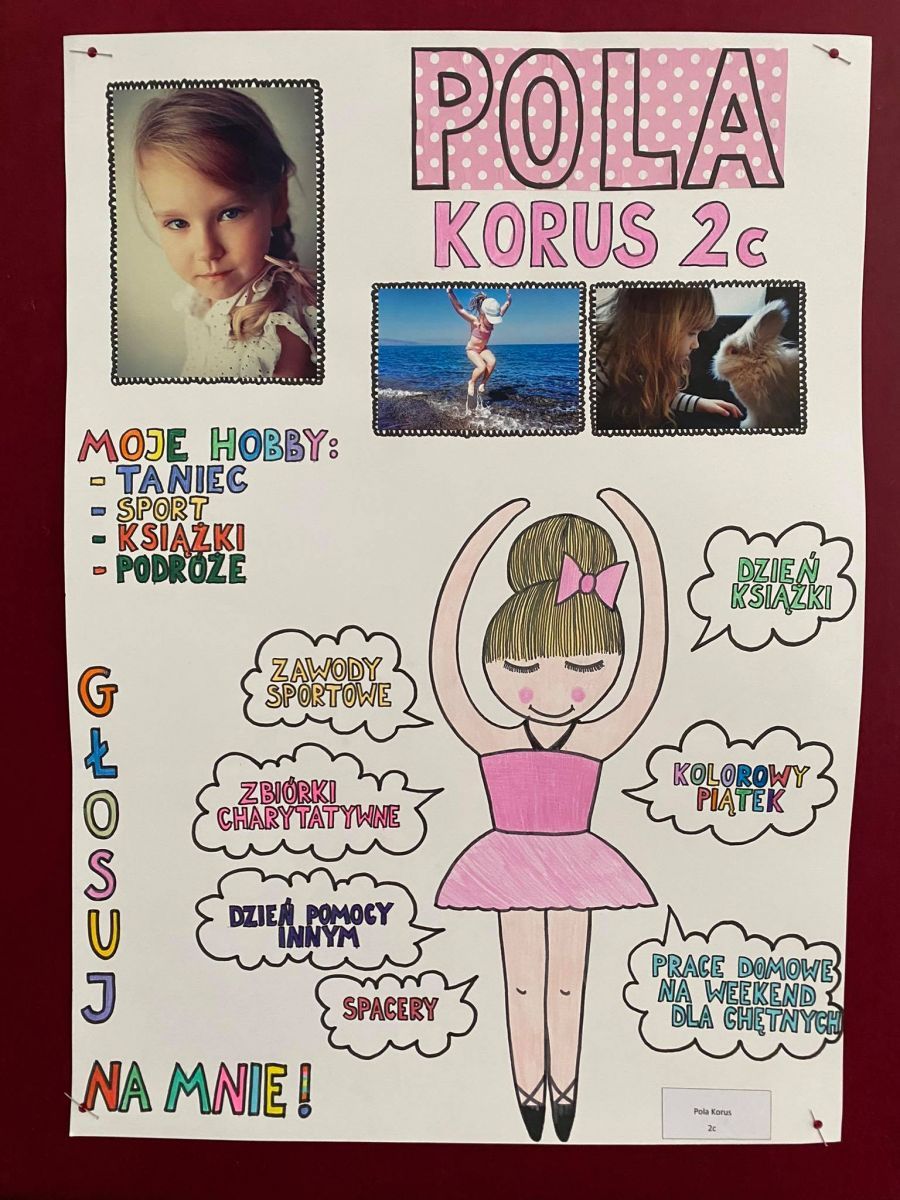 POLA
KORUS 2c
MOJE HOBBY:
- TANIEC
- SPORT
- KSIĄŻKI
- PODRÓŻE
DZIEŃ
KSIĄŻKI
ZAWODY
SPORTOWE
KOLOROWY
PIĄTEK
ZBIÓRKI
CHARYTATYWNE
DZIEŃ POMOCY
INNYM
PRACE DOMOWE
NA WEEKEND
DLA CHĘTNYCH
SPACERY
GŁOSUJ
NA MNIE!
Pola Korus
2c